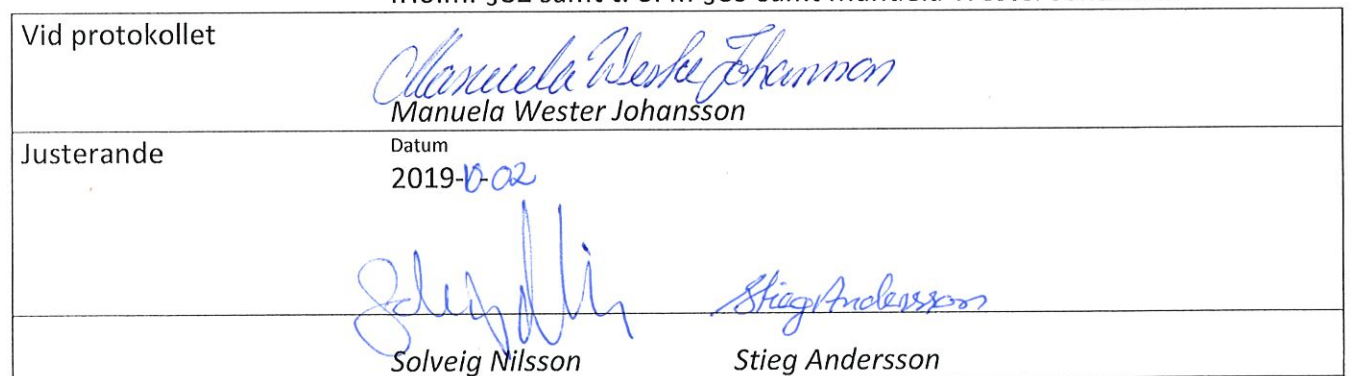 Vid protokollet
Manuela Wester Johansson
Manuela Wester Johansson
Justerande
Datum
2019-10-02
Stieg Andersson
Solveig Nilsson Stieg Andersson